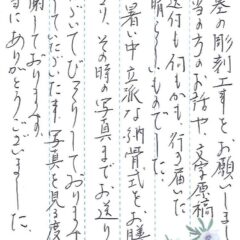 墓の彫刻工事をお願いしまし
当の方のお話や、文字原稿
送付も何もかも行き届いた
晴らしいものでした。
暑い中立派な納骨式をお膳
り、その時の写真までお送り
いてびっくりしております
していただいたお写真を見る度
謝しております。
当にありがとうございました。